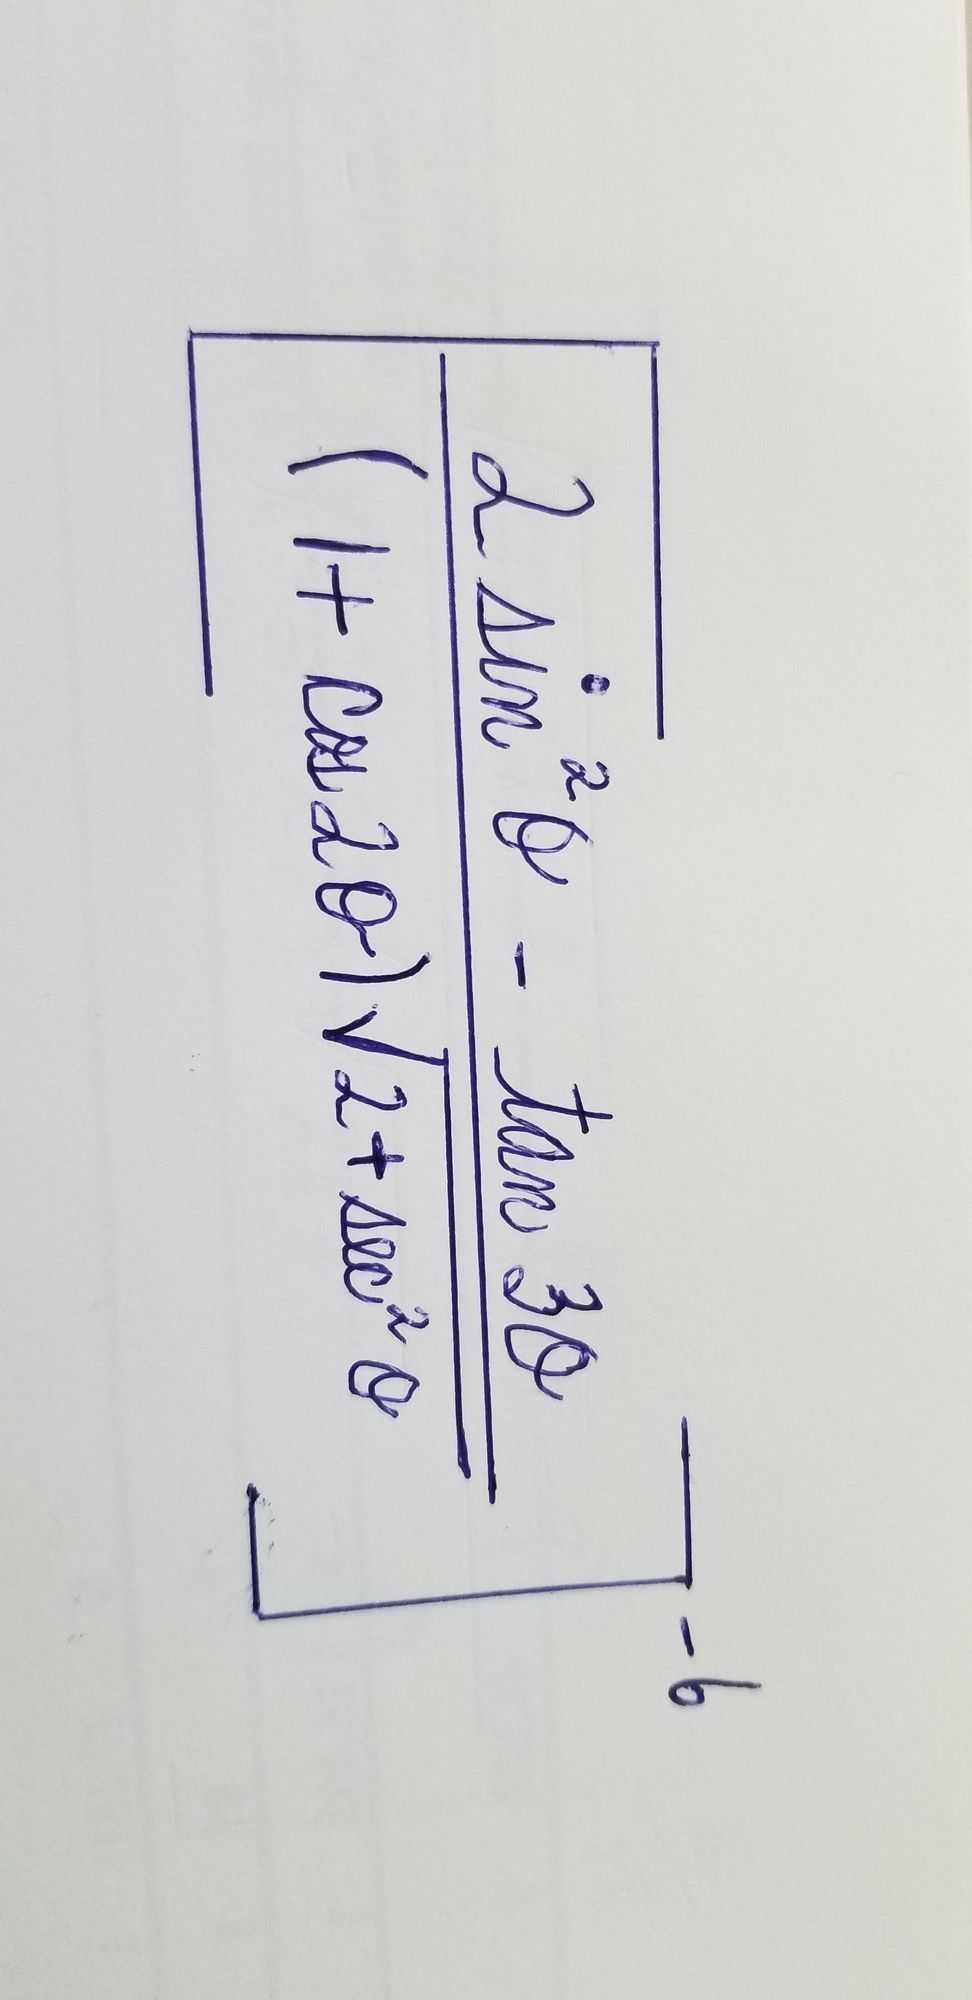 [2 sin²θ - tan 3θ / (1 + cos 2θ)√2 + sec²θ]⁻⁶